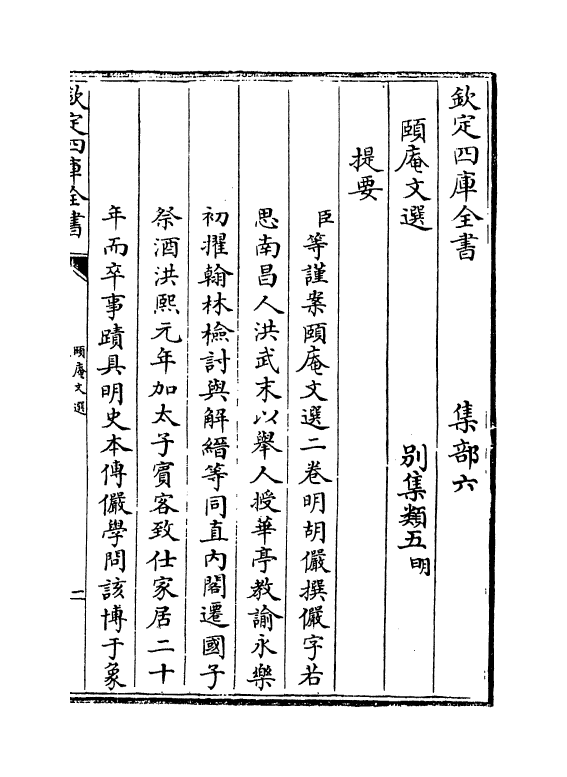 欽定四庫全書　集部六
頤庵文選　別集類五明
提要
臣等謹案頤庵文選二卷明胡儼撰儼字若
思南昌人洪武末以舉人授華亭教諭永樂
初擢翰林檢討與解縉等同直內閣遷國子
祭酒洪熙元年加太子賓客致仕家居二十
年而卒事蹟具明史本傳儼學問該博于象
欽定四庫全書
頤庵文選